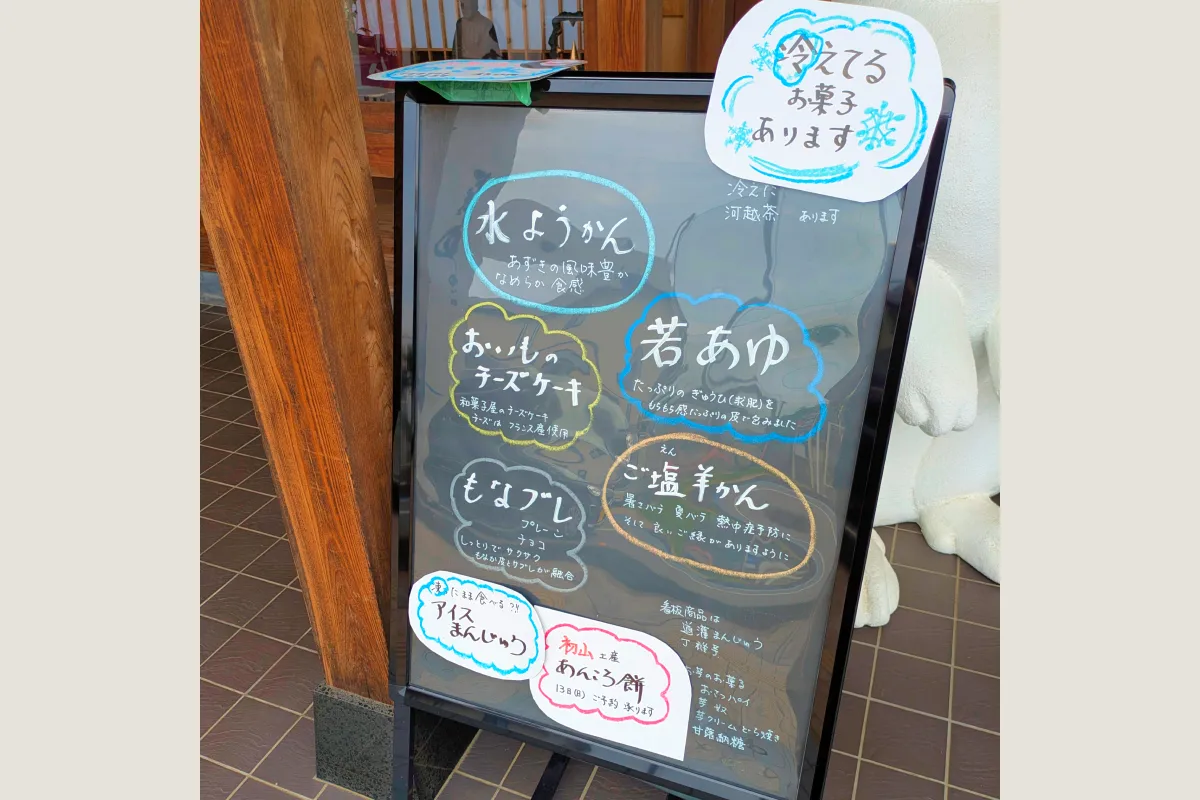 冷えてる
お菓子
あります
冷えた
河越茶 あります
水ようかん
あずきの風味豊か
なめらか食感
おいもの
チーズケーキ
和菓子屋のチーズケーキ
チーズはフランス産使用
若あゆ
たっぷりのぎゅうひ(求肥)を
もちもち感たっぷりの皮で包みました
もなブレ
プレーン
チョコ
しっとりでサクサク
もなか皮とサブレが融合
えん
ご塩羊かん
暑さバテ 夏バテ 熱中症予防に
そして良いご縁がありますように
凍ったまま食べる?!
アイス
まんじゅう
初山土産
あんころ餅
13日(日) ご予約承ります
看板商品は
道灌まんじゅう
お芋のお菓子
おさつパイ
芋クリームどら焼き
甘藷納糖